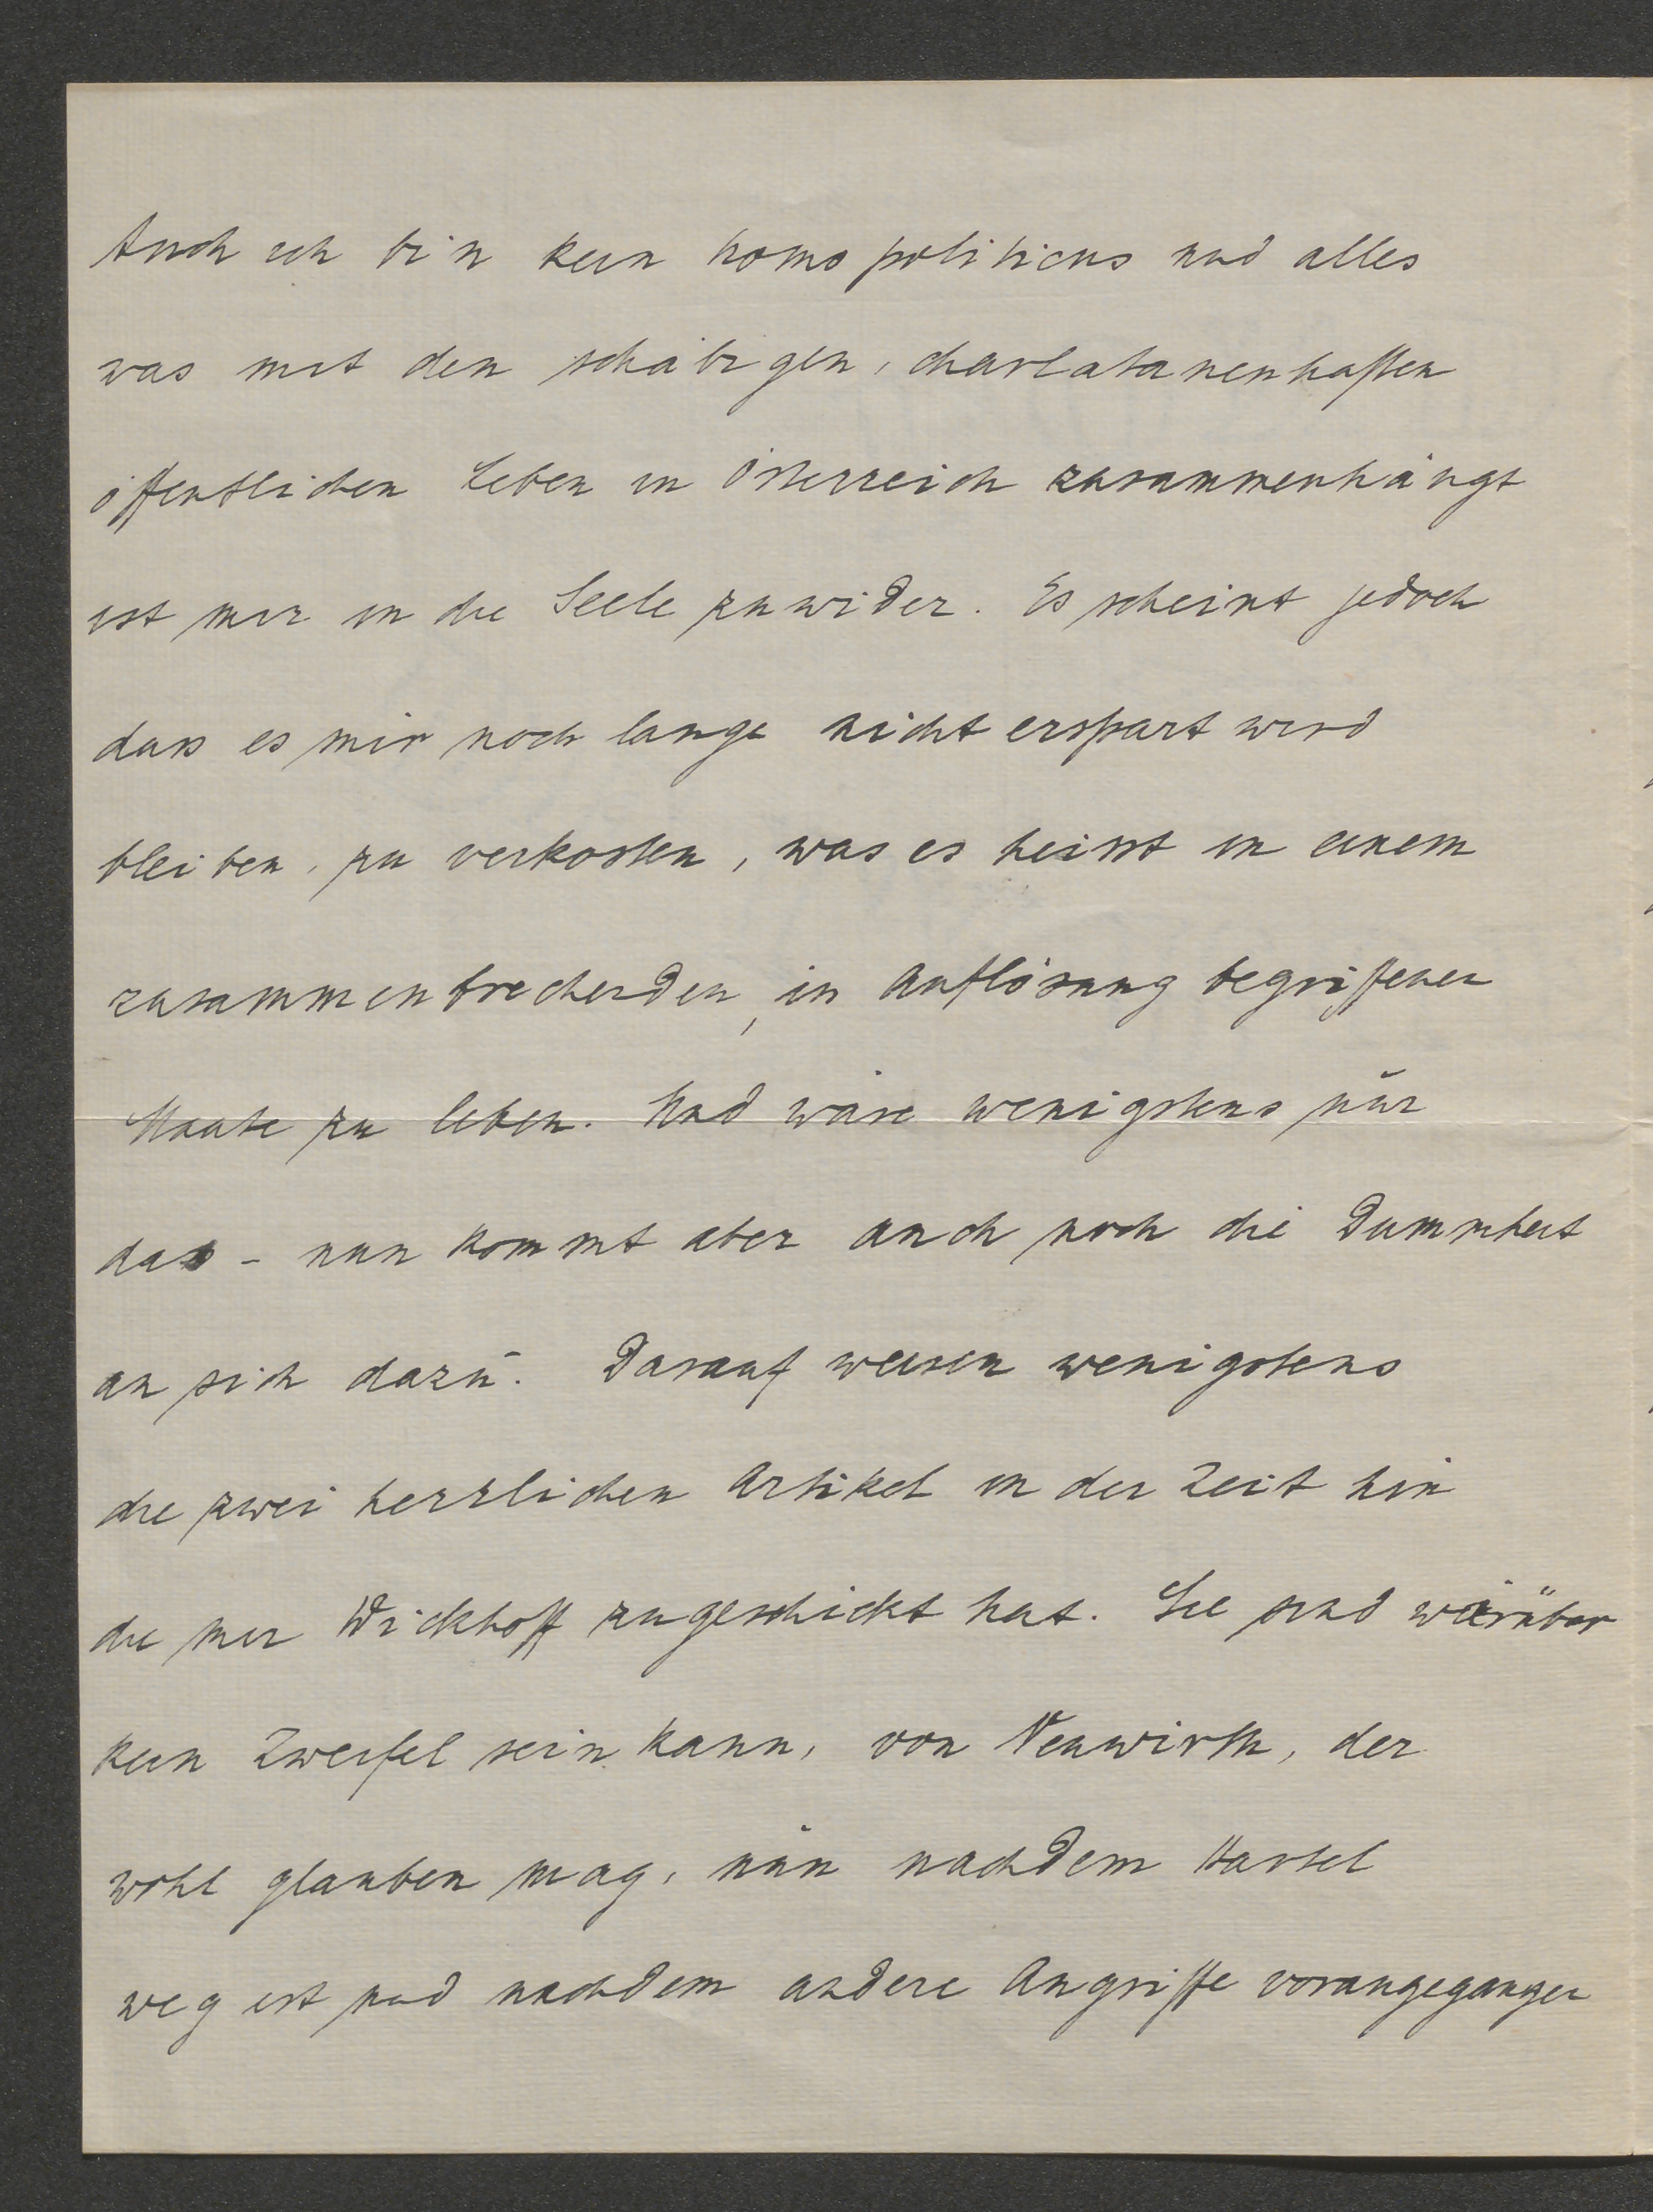 Auch ich bin kein homo politicus und alles
was mit den schäbigen, charlatanenhaften
öffentlichen Leben in Österreich zusammenhängt
ist mir in die Seele zuwider. Es scheint jedoch
dass es mir noch lange nicht erspart wird
bleiben, zu verkosten, was es heisst in einem
zusammenbrechenden, in Auflösung begriffenen
Staate zu leben. Und wäre wenigstens nur
das - nun kommt aber auch noch die Dummheit
an sich dazu. Darauf weisen wenigstens
die zwei herrlichen Artikel in der Zeit hin
die mir Wickhoff zugeschickt hat. Sie sind worüber
kein Zweifel sein kann, von Neuwirth, der
wohl glauben mag, nun nachdem Hartel
weg ist und nachdem andere Angriffe vorangegangen